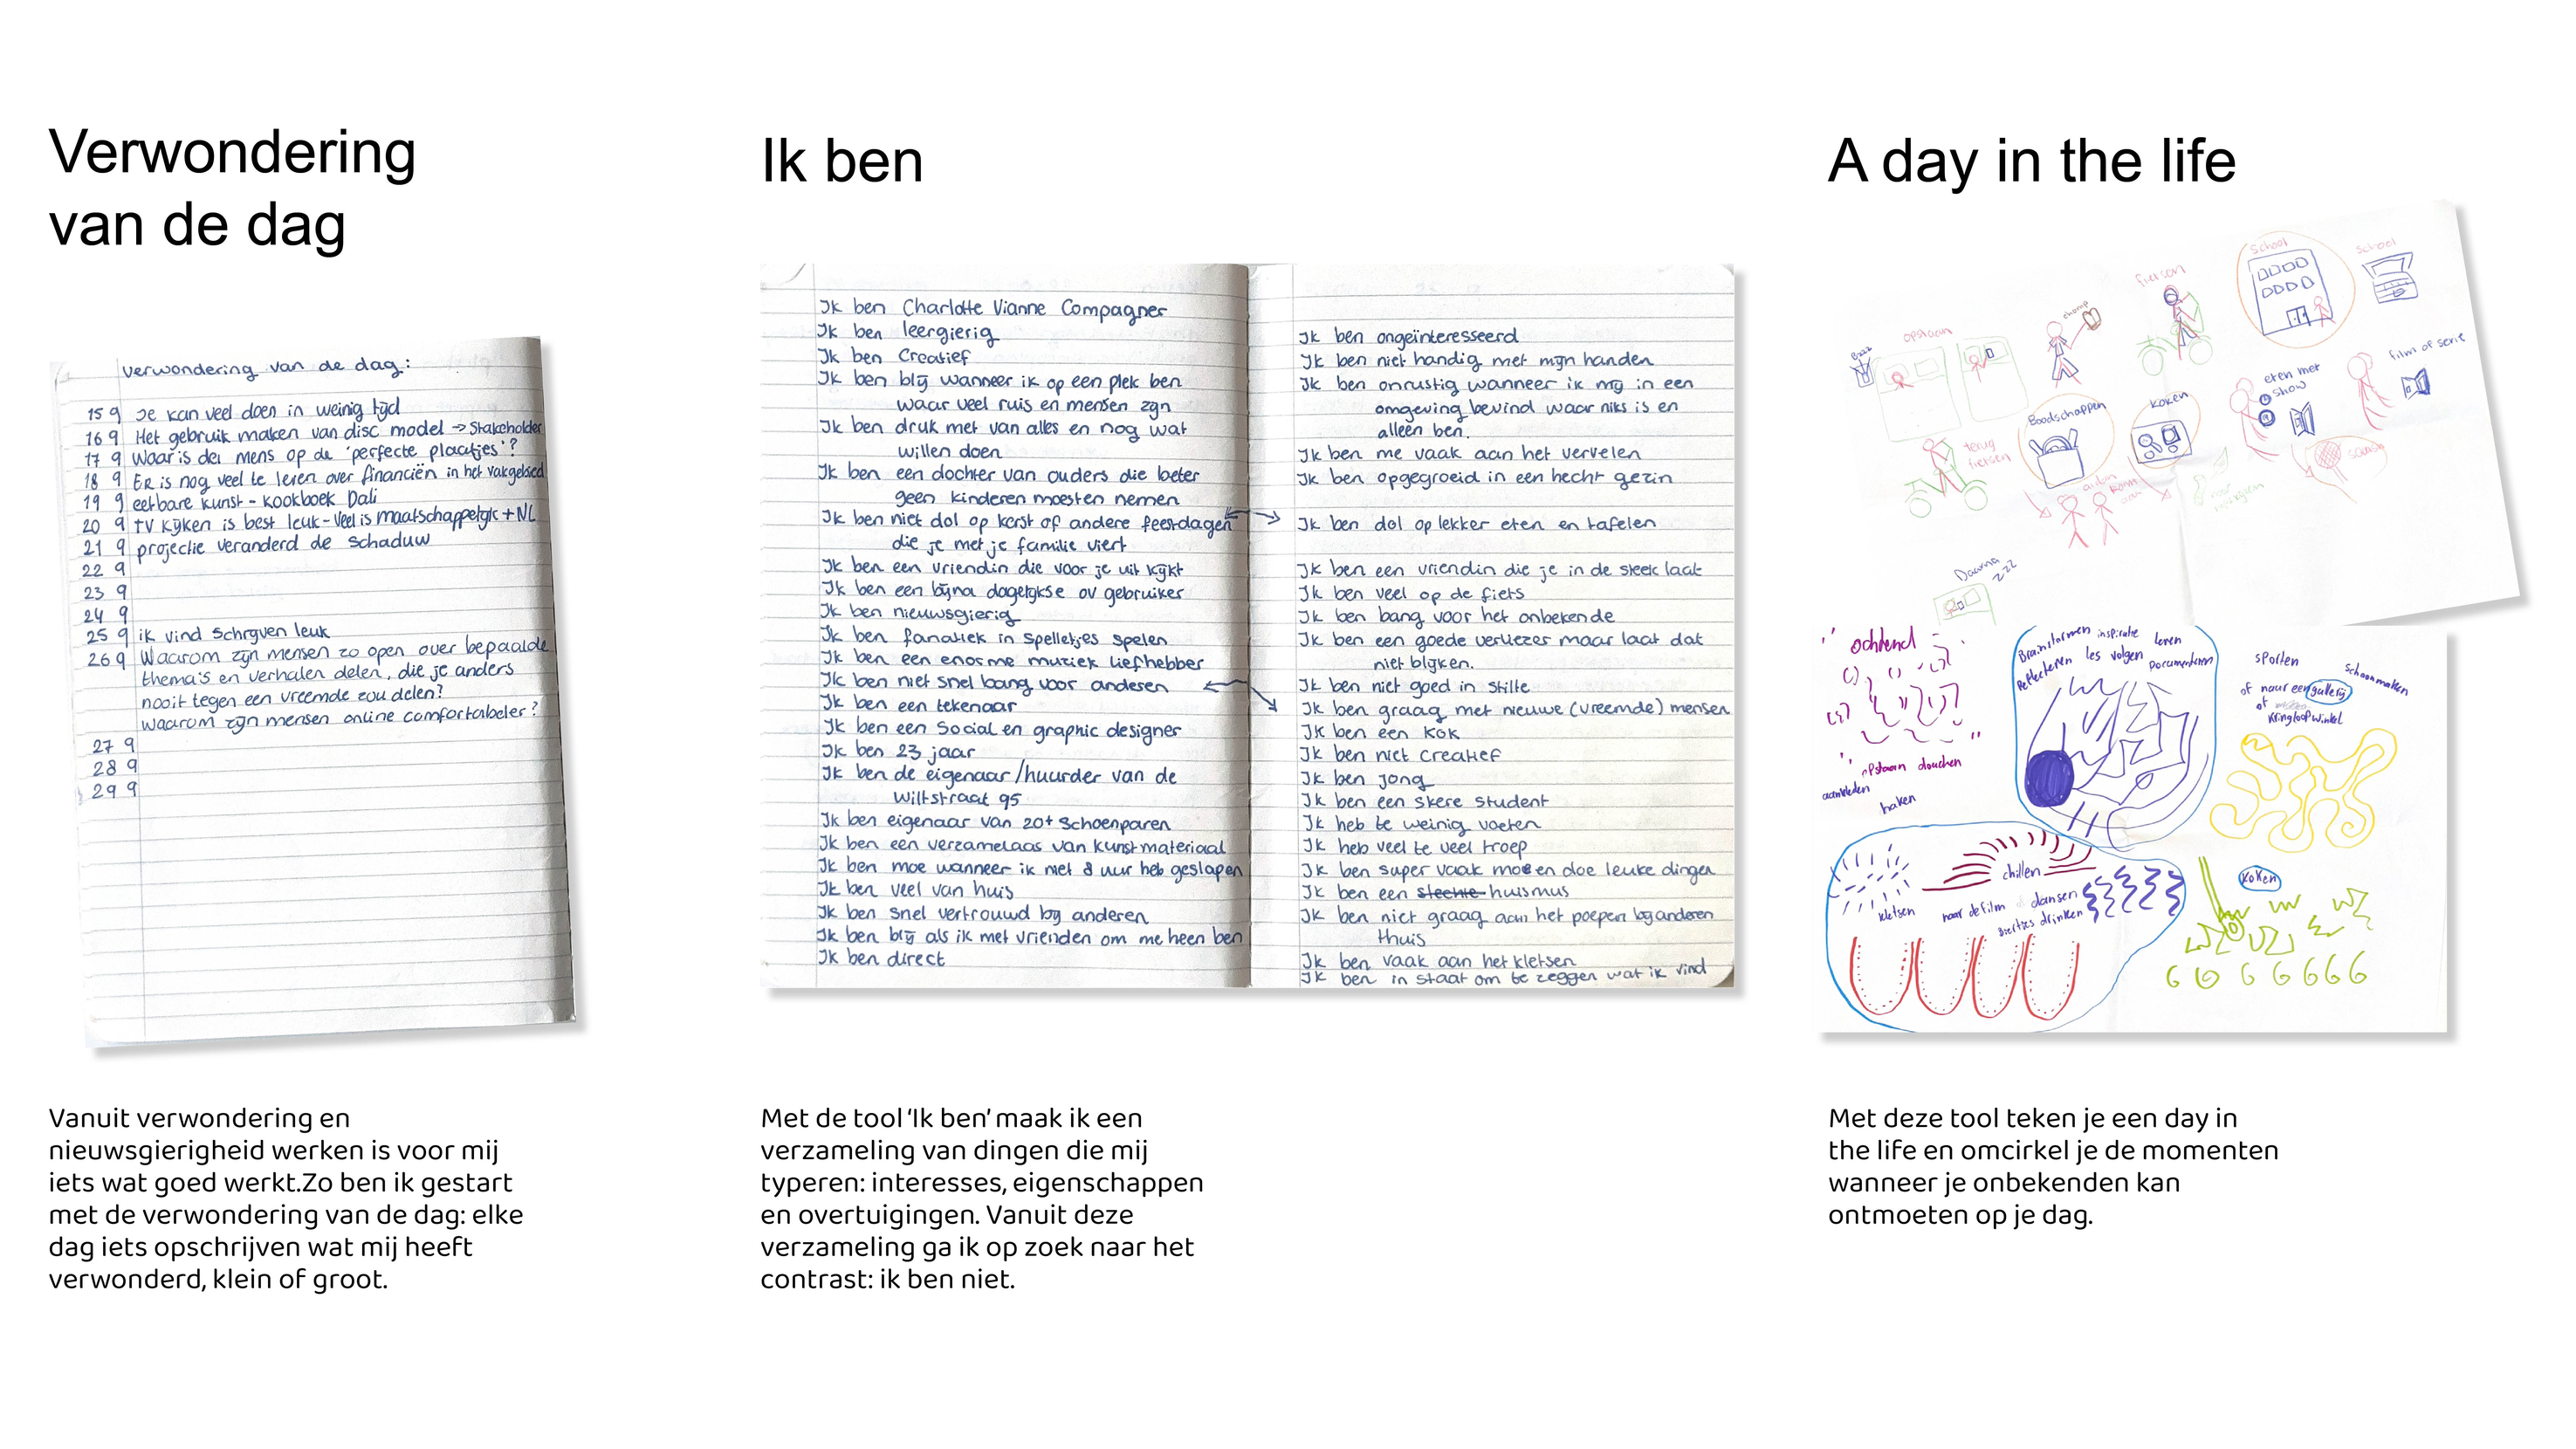 Verwondering
van de dag
verwondering van de dag:
15 9 Je kan veel doen in weinig tijd
16 9 Het gebruik maken van disc model → Stakeholder
17 9 Waar is dei mens op de 'perfecte plaatjes'?
18 9 Er is nog veel te leren over financiën in het vakgebied
19 9 eetbare kunst - kookboek Dali
20 9 TV kijken is best leuk - veel is maatschappelijk + NL
21 9 projectie veranderd de schaduw
22 9
23 9
24 9
25 9 ik vind schrijven leuk
26 9 Waarom zijn mensen zo open over bepaalde
thema's en verhalen delen, die je anders
nooit tegen een vreemde zou delen?
waarom zijn mensen online comfortabeler?
27 9
28 9
29 9
Vanuit verwondering en
nieuwsgierigheid werken is voor mij
iets wat goed werkt.Zo ben ik gestart
met de verwondering van de dag: elke
dag iets opschrijven wat mij heeft
verwonderd, klein of groot.
Ik ben
Ik ben Charlotte Vianne Compagner
Ik ben leergierig
Ik ben Creatief
Ik ben blij wanneer ik op een plek ben
waar veel ruis en mensen zijn
Ik ben druk met van alles en nog wat
willen doen
Ik ben een dochter van ouders die beter
geen kinderen moesten nemen
Ik ben niet dol op kerst of andere feestdagen
die je met je familie viert
Ik ben een vriendin die voor je uit kijkt
Ik ben een bijna dagelijkse ov gebruiker
Ik ben nieuwsgierig
Ik ben fanatiek in spelletjes spelen
Ik ben een enorme muziek liefhebber
Ik ben niet snel bang voor anderen
Ik ben een tekenaar
Ik ben een Social en graphic designer
Ik ben 23 jaar
Ik ben de eigenaar/huurder van de
Wiltstraat 95
Ik ben eigenaar van 20+ schoenparen
Ik ben een verzamelaar van kunstmateriaal
Ik ben moe wanneer ik niet 8 uur heb geslapen
Ik ben veel van huis
Ik ben snel vertrouwd bij anderen
Ik ben blij als ik met vrienden om me heen ben
Ik ben direct
Ik ben ongeïnteresseerd
Ik ben niet handig met mijn handen
Ik ben onrustig wanneer ik mij in een
omgeving bevind waar niks is en
alleen ben.
Ik ben me vaak aan het vervelen
Ik ben opgegroeid in een hecht gezin
Ik ben dol op lekker eten en tafelen
Ik ben een vriendin die je in de steek laat
Ik ben veel op de fiets
Ik ben bang voor het onbekende
Ik ben een goede verliezer maar laat dat
niet blijken.
Ik ben niet goed in stilte
Ik ben graag met nieuwe (vreemde) mensen
Ik ben een kok
Ik ben niet creatief
Ik ben jong
Ik ben een skere student
Ik heb te weinig voeten
Ik heb veel te veel troep
Ik ben super vaak moe en doe leuke dingen
Ik ben een slechte huismus
Ik ben niet graag aan het poepen bij anderen
thuis
Ik ben vaak aan het kletsen
Ik ben in staat om te zeggen wat ik vind
Met de tool 'Ik ben' maak ik een
verzameling van dingen die mij
typeren: interesses, eigenschappen
en overtuigingen. Vanuit deze
verzameling ga ik op zoek naar het
contrast: ik ben niet.
A day in the life
Bzzz
opstaan
chomp
fietsen
school
school
terug
fietsen
Boodschappen
koken
eten met
show
film of serie
squash
Daarna
zzz
ochtend
opstaan douchen
aankleden
haken
Brainstormen inspiratie leren
Reflecteren les volgen Documenteren
sporten
schoonmaken
of naar een gallerij
of
kringloopwinkel
chillen
kletsen
naar de film
dansen
biertjes drinken
koken
Met deze tool teken je een day in
the life en omcirkel je de momenten
wanneer je onbekenden kan
ontmoeten op je dag.